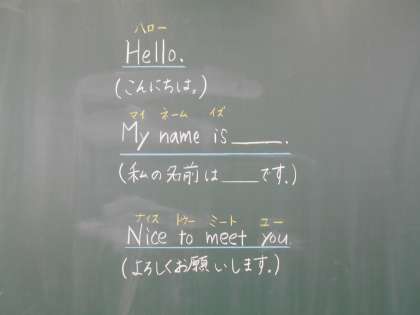 ハロー
Hello.
(こんにちは。)
マイ ネーム イズ
My name is ____.
(私の名前は____です。)
ナイス トゥー ミート ユー
Nice to meet you.
(よろしくお願いします。)